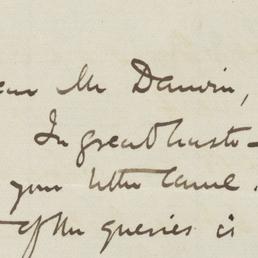 ear Mr Darwin,
In great haste –
your letter came
of the queries is